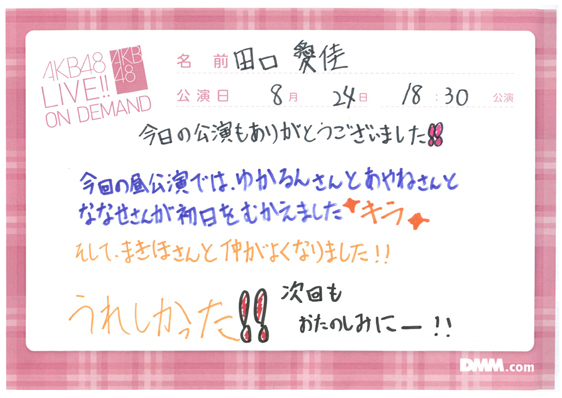 AKB48
LIVE!!
ON DEMAND
AKB
48
名前 田口 愛佳
公演日 8月 24日 18:30 公演
今日の公演もありがとうございました!!
今回の昼公演では、ゆかるんさんとあやねさんと
ななせさんが初日をむかえました キラ
そして、まきほさんと仲がよくなりました!!
うれしかった!!
次回も
おたのしみにー!!
DMM.com